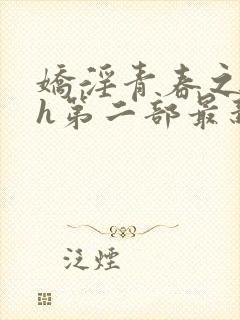 嬌淫青春之
h第二部最新
泛煙